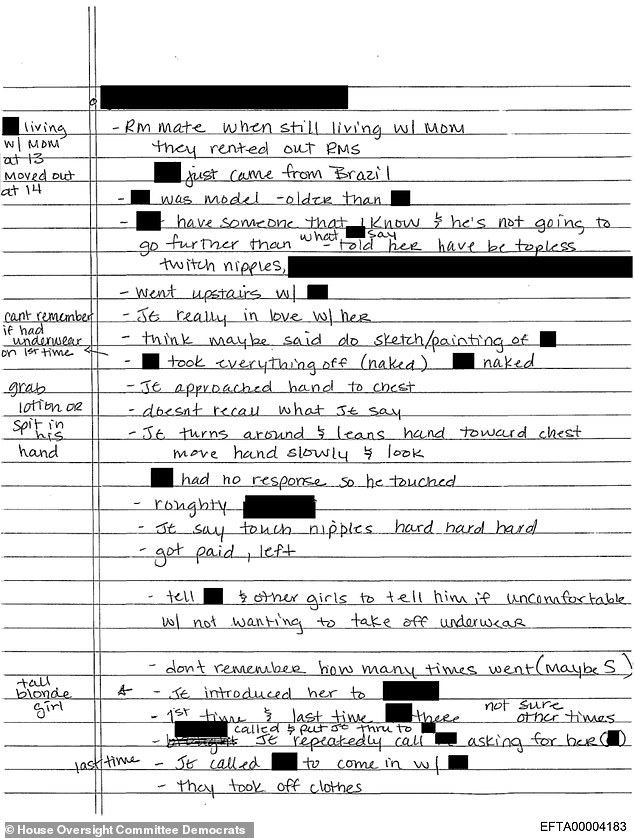 living
w/ MOM
at 13
moved out
at 14
- Rm mate when still living w/ MOM
they rented out RMS
just came from Brazil
- was model - older than
- have someone that I know & he's not going to
go further than what say
- told her have be topless
twitch nipples,
- went upstairs w/
cant remember
if had
underwear
on 1st time
- JE really in love w/ her
- think maybe said do sketch/painting of
- took everything off (naked) naked
grab
lotion or
spit in
his
hand
- JE approached hand to chest
- doesnt recall what JE say
- JE turns around & leans hand toward chest
move hand slowly & look
had no response so he touched
- roughty
- JE say touch nipples hard hard hard
- got paid, left
- tell & other girls to tell him if uncomfortable
w/ not wanting to take off underwear
- dont remember how many times went (maybe 5)
tall
blonde
girl
- JE introduced her to
- 1st time & last time there not sure other times
called & put JE thru to
- JE repeatedly call asking for her ( )
last time
- JE called to come in w/
- they took off clothes
© House Oversight Committee Democrats
EFTA00004183